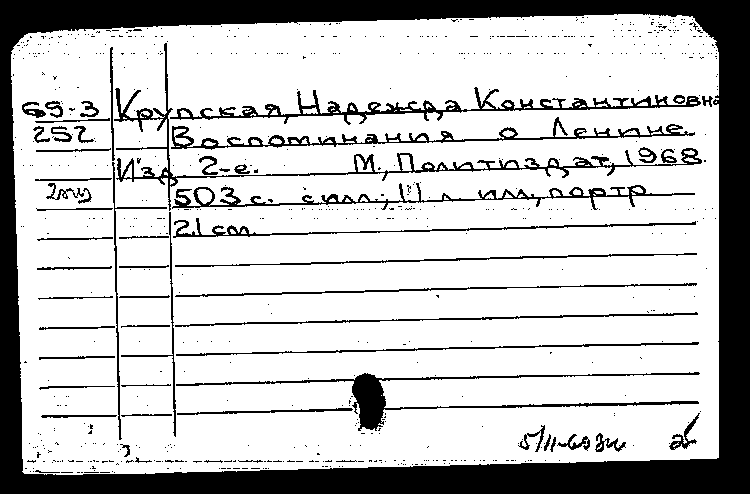 69-3 Крупская, Надежда Константиновна
252 Воспоминания о Ленине.
Изд. 2-е. М., Политиздат, 1968.
503 с. с илл.; 11 л. илл., портр.
21 см.